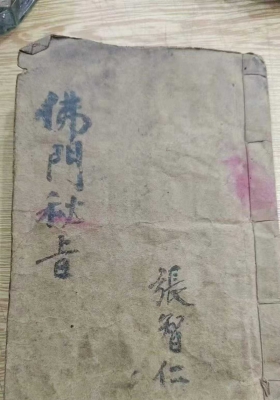 佛門秘旨
張智仁